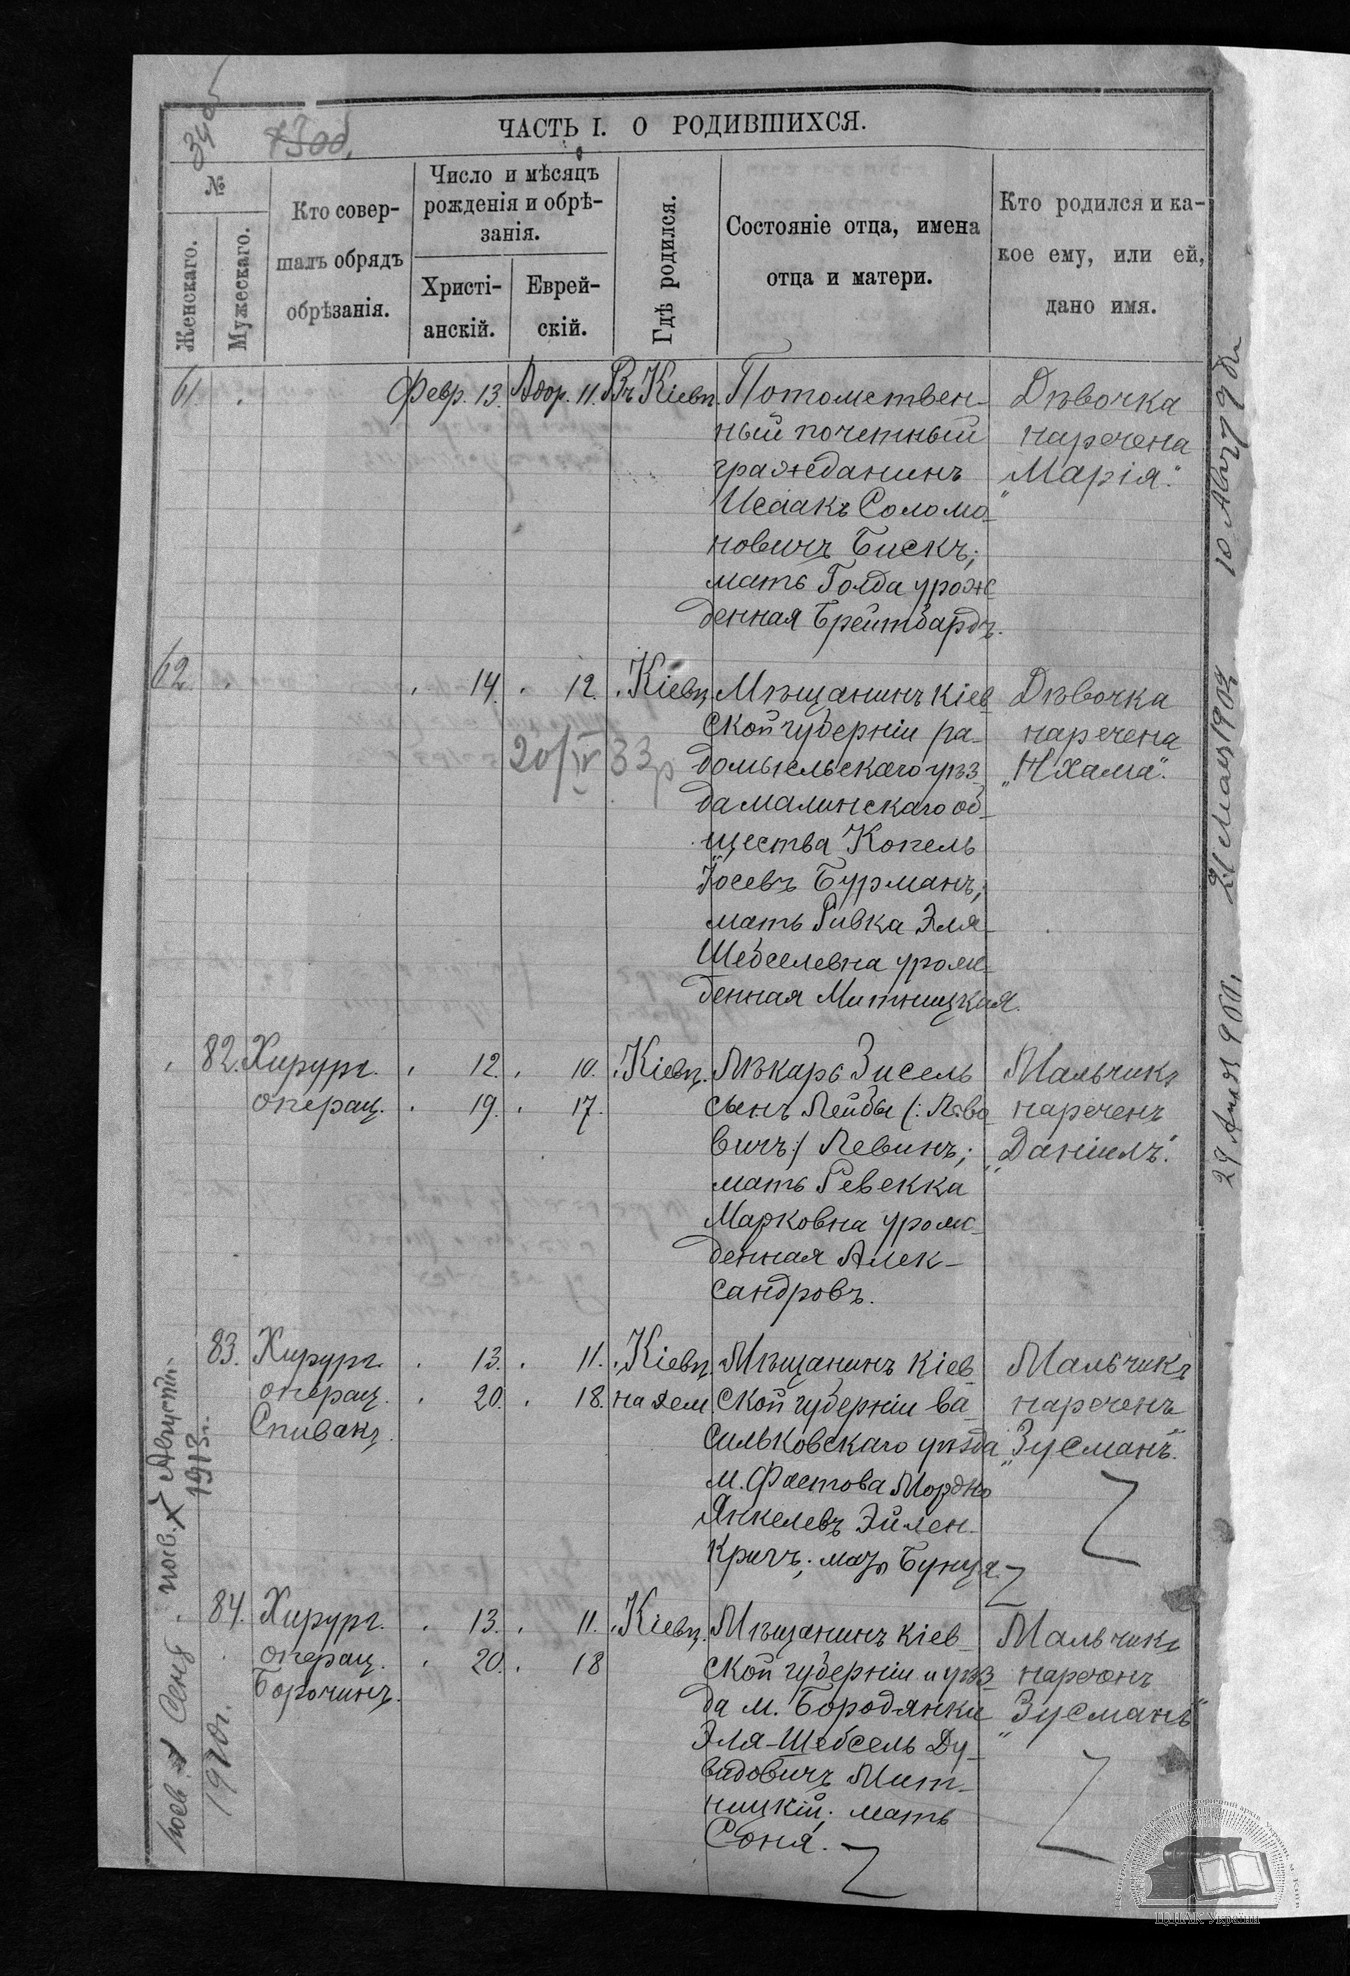 ЧАСТЬ I. О РОДИВШИХСЯ.
№
Женскаго.
Мужескаго.
Кто совер-
шалъ обрядъ
обрѣзанія.
Число и мѣсяцъ
рожденія и обрѣ-
занія.
Христі-
анскій.
Еврей-
скій.
Гдѣ родился.
Состояніе отца, имена
отца и матери.
Кто родился и ка-
кое ему, или ей,
дано имя.
61. Февр. 13. Адор. 11. Въ Кіевѣ.
Потомствен-
ный почетный
гражданинъ
Исаакъ Соломо-
новичъ Бискъ;
мать Голда урож-
денная Брейтбардъ.
Дѣвочка
наречена
„Марія".
62. 14. 12. Кіевѣ.
20/IV 33 р
Мѣщанинъ Кіев-
ской губерніи ра-
домысльскаго уѣз-
да малинскаго об-
щества Копель
Іосевъ Бурманъ;
мать Ривка Эля-
Шебселевна урож-
денная Митницкая.
Дѣвочка
наречена
„Нхама".
82. Хирург. 12. 10. Кіевѣ.
операц. 19. 17.
Лѣкарь Зисель
сынъ Лейбы (: Льво
вичъ:) Левинъ;
мать Ревекка
Марковна урож-
денная Алек-
сандровъ.
Мальчикъ
нареченъ
„Даніилъ".
83. Хирург. 13. 11. Кіевѣ
операц. 20. 18. на дем
Спивакъ.
Мѣщанинъ Кіев-
ской губерніи ва-
сильковскаго уѣзда
м. Фастова Мордко
Янкелевъ Эйлен-
кричъ; мать Бунця.
Мальчикъ
нареченъ
„Зусманъ".
84. Хирург. 13. 11. Кіевѣ.
операц. 20. 18
Борочинъ.
Мѣщанинъ Кіев-
ской губерніи и уѣз-
да м. Бородянки
Эля-Шебсель Ду-
видовичъ Мит-
ницкій; мать
Соня.
Мальчикъ
нареченъ
„Зусманъ"
Августа
1913г.
1910г.
21 Мая 1904
ЦДІАК України